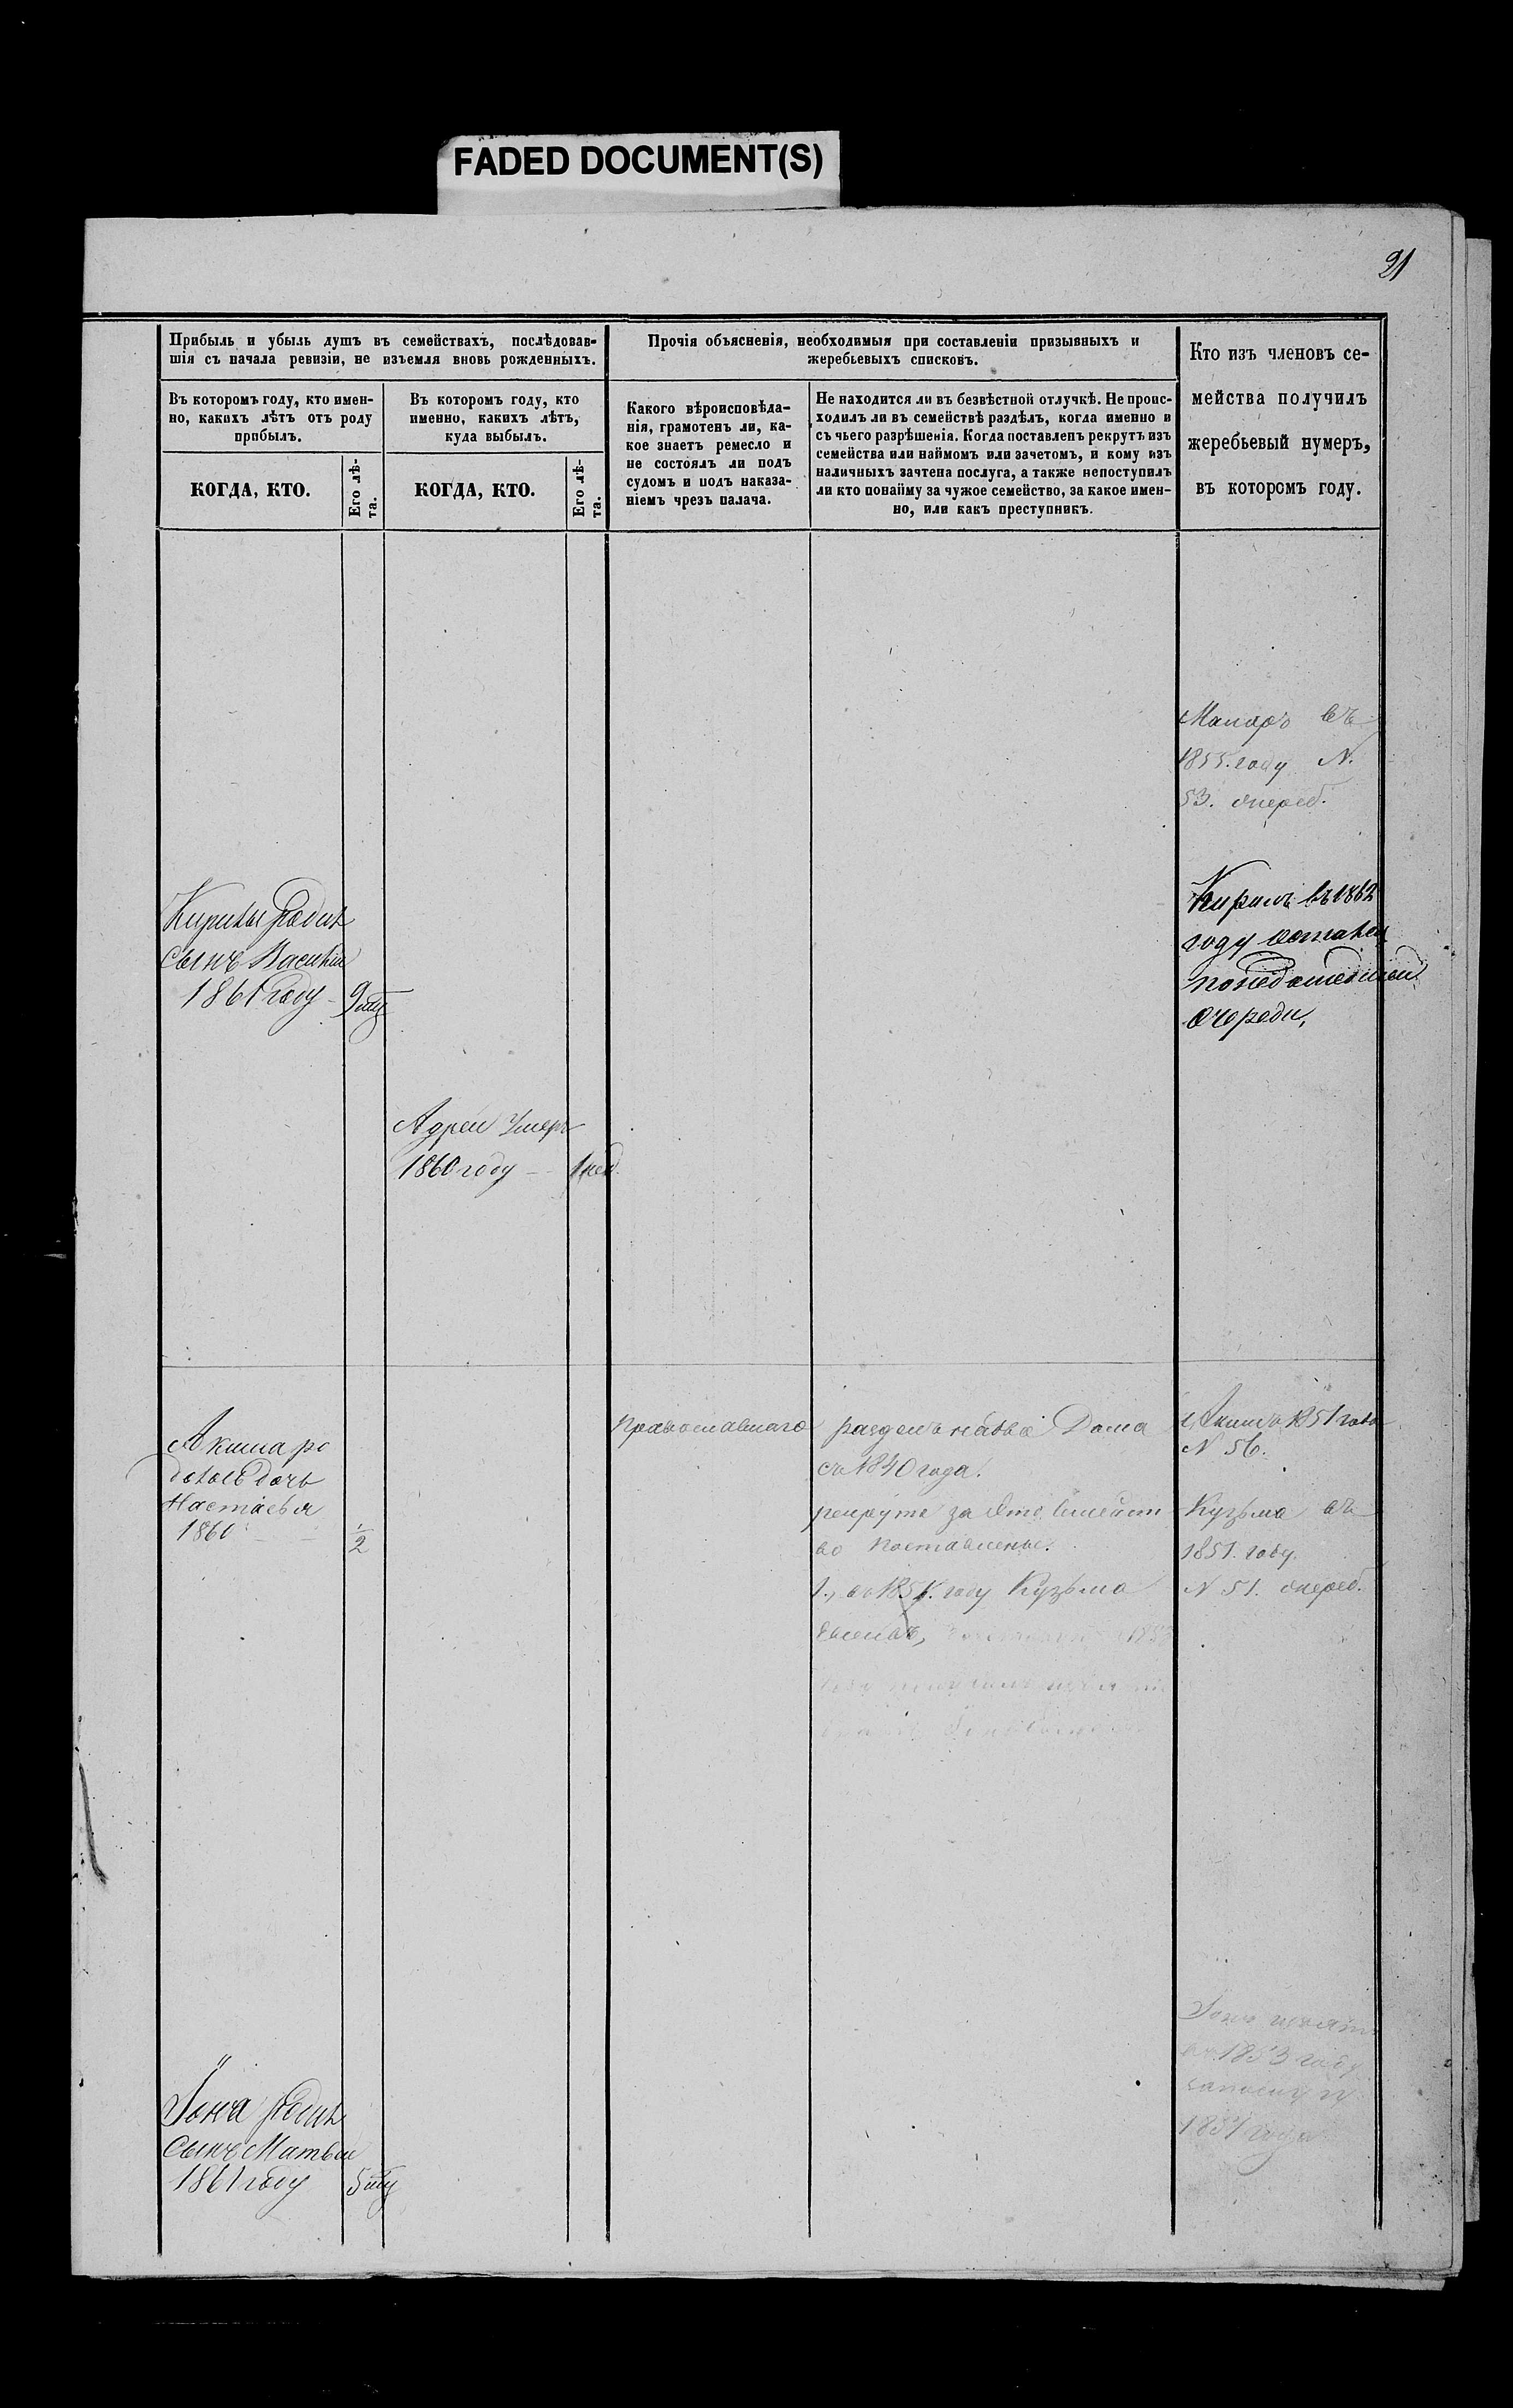 FADED DOCUMENT(S)
21
Прибыль и убыль душъ въ семействахъ, послѣдовав-
шія съ начала ревизіи, не изъемля вновь рожденныхъ.
Въ которомъ году, кто имен-
но, какихъ лѣтъ отъ роду
прибылъ.
КОГДА, КТО.
Его лѣ-
та.
Въ которомъ году, кто
именно, какихъ лѣтъ,
куда выбылъ.
КОГДА, КТО.
Его лѣ-
та.
Прочія объясненія, необходимыя при составленіи призывныхъ и
жеребьевыхъ списковъ.
Какого вѣроисповѣда-
нія, грамотенъ ли, ка-
кое знаетъ ремесло и
не состоялъ ли подъ
судомъ и подъ наказа-
ніемъ чрезъ палача.
Не находится ли въ безвѣстной отлучкѣ. Не проис-
ходилъ ли въ семействѣ раздѣлъ, когда именно и
съ чьего разрѣшенія. Когда поставленъ рекрутъ изъ
семейства или наймомъ или зачетомъ, и кому изъ
наличныхъ зачтена послуга, а также непоступилъ
ли кто понайму за чужое семейство, за какое имен-
но, или какъ преступникъ.
Кто изъ членовъ се-
мейства получилъ
жеребьевый нумеръ,
въ которомъ году.
Макаръ въ
1855. году N.
53.
Кирилъ въ 1862
году
очереди,
Кирилы родил
сынъ Василій
1861 году 9 мц
Адреи Умеръ
1860 году 1 нед.
Акима ро
дилась дочь
Настасья
1860 1/2
Православнаго
раздель Дома
съ 1840 года.
рекрутъ за это семейст
во поставлены.
1., въ 185 году Кузьма
Акимъ 1851 года
N 56.
Кузьма въ
1851. году.
N 51.
въ 1853 году
1851 года
Іона родил
сынъ Матвеи
1861 году 5 мц